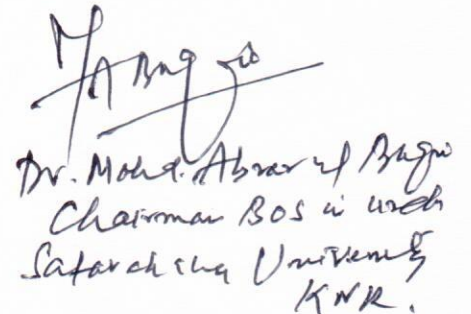 MA Baqio
Dr. Mohd. Abrar ul Baqio
Chairman BOS in Urdu
Satavahana University
KNR.